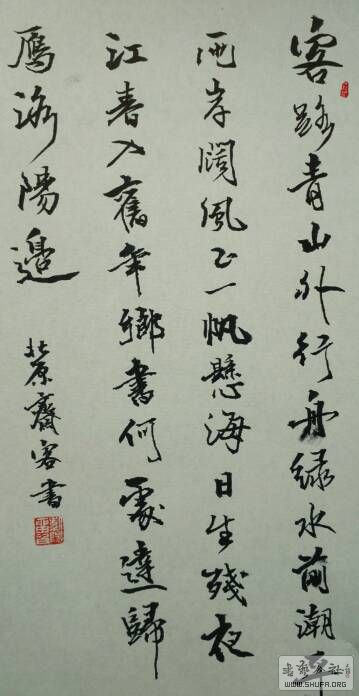 客路青山外行舟绿水前潮平
两岸阔風正一帆懸海日生殘夜
江春入舊年鄉書何處達歸
鴈洛陽邊
北原齋客書
WWW.SHUFA.ORG